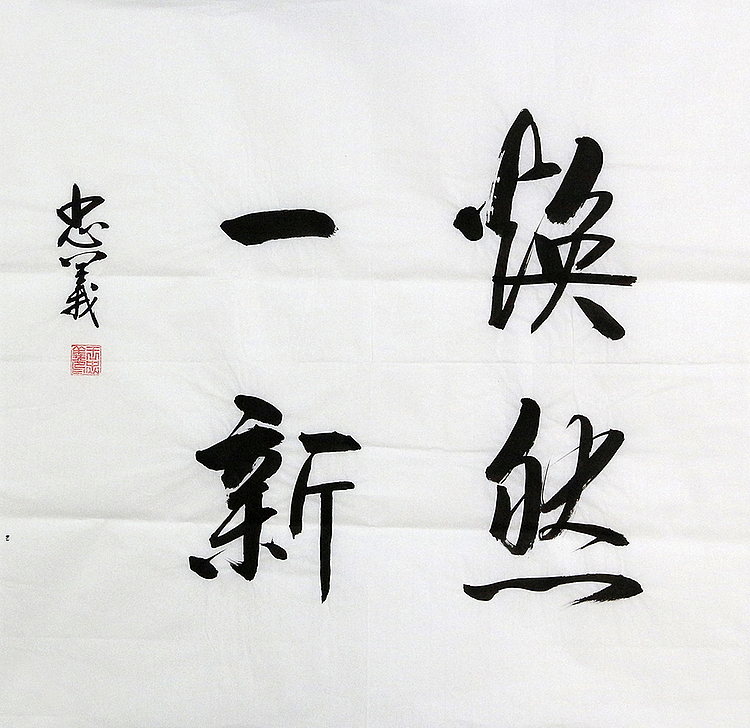 焕然
一新
忠義